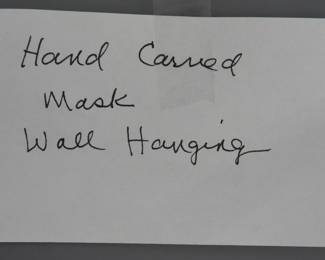 Hand Carved
Mask
Wall Hanging